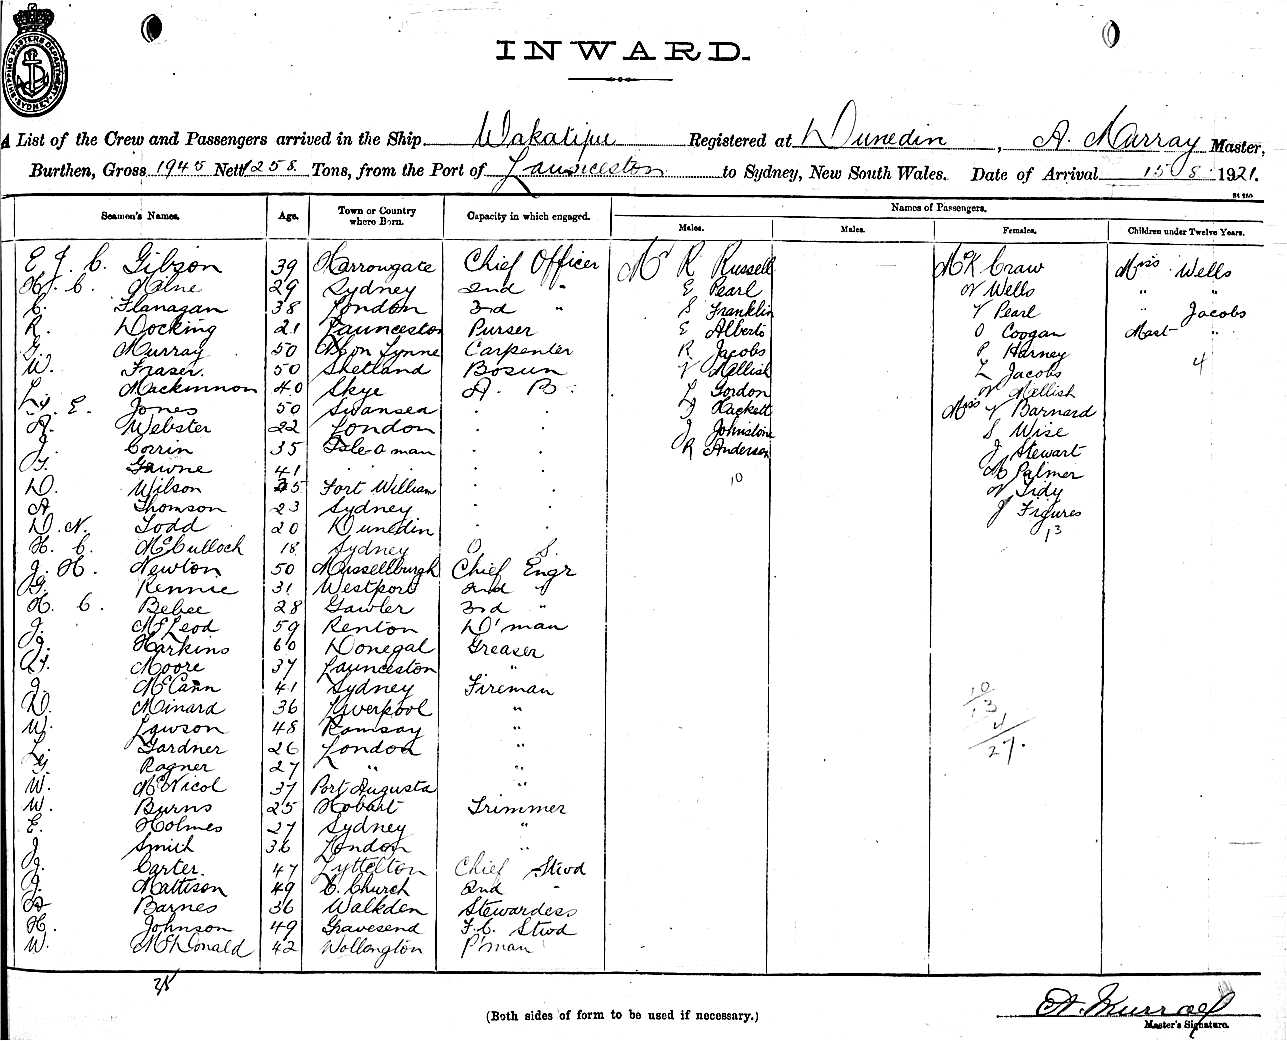 SHIPPING MASTERS DEPARTMENT SYDNEY
INWARD.
A List of the Crew and Passengers arrived in the Ship Wakatipu Registered at Dunedin, A. Murray Master,
Burthen, Gross 1945 Nett 1258 Tons, from the Port of Launceston to Sydney, New South Wales. Date of Arrival 15 8 1921.
Names of Passengers.
Seamen's Names. Age. Town or Country where Born. Capacity in which engaged. Males. Males. Females. Children under Twelve Years.
E J C Gibson 39 Harrowgate Chief Officer Mr R Russell Mrs K Craw Miss Wells
H. C. Milne 29 Sydney 2nd " E Pearl N Wells " "
C. Flanagan 38 London 3rd " S Franklin V Pearl " Jacobs
R. Docking 21 Launceston Purser E Alberto O Coogan Mast "
Murray 50 Lynne Carpenter R Jacobs P Harney 4
W. Fraser. 50 Shetland Bosun V Mellish L Jacobs
L. Mackinnon 40 Skye A. B. L Gordon N Mellish
E. Jones 50 Swansea " Hackett Miss V Barnard
A. Webster 22 London " J Johnstone S Wise
J. Corrin 35 Isle o man " R Anderson J Stewart
Gawne 41 " " " 10 M Palmer
D. Wilson 35 Fort William " N Tidy
A. Thomson 23 Sydney " J Figures
D. N. Todd 20 Dunedin " 13
H. C. McCulloch 18 Sydney O S.
J. H. Newton 50 Mussellburgh Chief Engr
G. Rennie 31 Westport 2nd "
H. C. Bebee 28 Gawler 3rd "
J. McLeod 59 Renton D'man
J. Harkins 60 Donegal Greaser
Moore 37 Launceston "
J. McCann 41 Sydney Fireman 10
D. Minard 36 Liverpool " 13
W. Lawson 48 Ramsay " 4
L. Gardner 26 London " 27.
Ragner 27 " "
W. McNicol 37 Port Augusta "
W. Burns 25 Hobart Trimmer
E. Holmes 27 Sydney "
J Smith 36 London "
J. Carter. 47 Lyttelton Chief Stwd
J. Mattison 49 C. Church 2nd "
Barnes 36 Walkden Stewardess
H. Johnson 49 Gravesend F.C. Stwd
W. McDonald 42 Wollongton P'man
(Both sides of form to be used if necessary.)
A. Murray
Master's Signature.